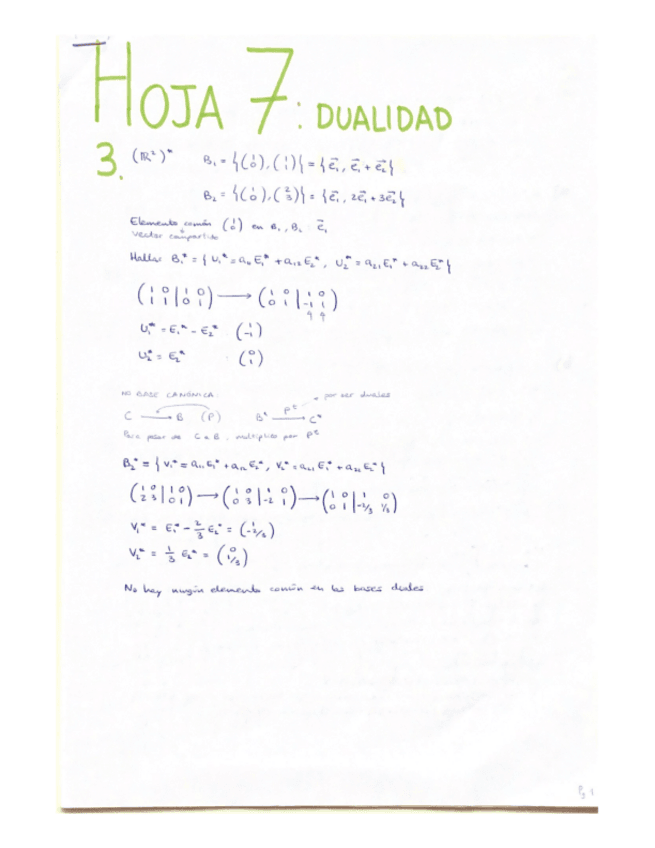 HOJA 7: DUALIDAD
3. (ℝ²)* B₁ = {(1 0), (1 1)} = {e⃗₁, e⃗₁ + e⃗₂}
B₂ = {(1 0), (2 3)} = {e⃗₁, 2e⃗₁ + 3e⃗₂}
Elemento común (1 0) en B₁, B₂ : e⃗₁
vector compartido
Hallar B₁* = {U₁* = a₁₁E₁* + a₁₂E₂*, U₂* = a₂₁E₁* + a₂₂E₂*}
(1 0 | 1 0
1 1 | 0 1) → (1 0 | 1 0
0 1 | -1 1)
U₁* = E₁* - E₂* (1 -1)
U₂* = E₂* (0 1)
NO BASE CANÓNICA: por ser duales
C → B (P) B* Pᵗ → C*
Para pasar de C a B, multiplico por Pᵗ
B₂* = {V₁* = a₁₁E₁* + a₁₂E₂*, V₂* = a₂₁E₁* + a₂₂E₂*}
(1 0 | 1 0
2 3 | 0 1) → (1 0 | 1 0
0 3 | -2 1) → (1 0 | 1 0
0 1 | -2/3 1/3)
V₁* = E₁* - 2/3 E₂* = (1 -2/3)
V₂* = 1/3 E₂* = (0 1/3)
No hay ningún elemento común en las bases duales